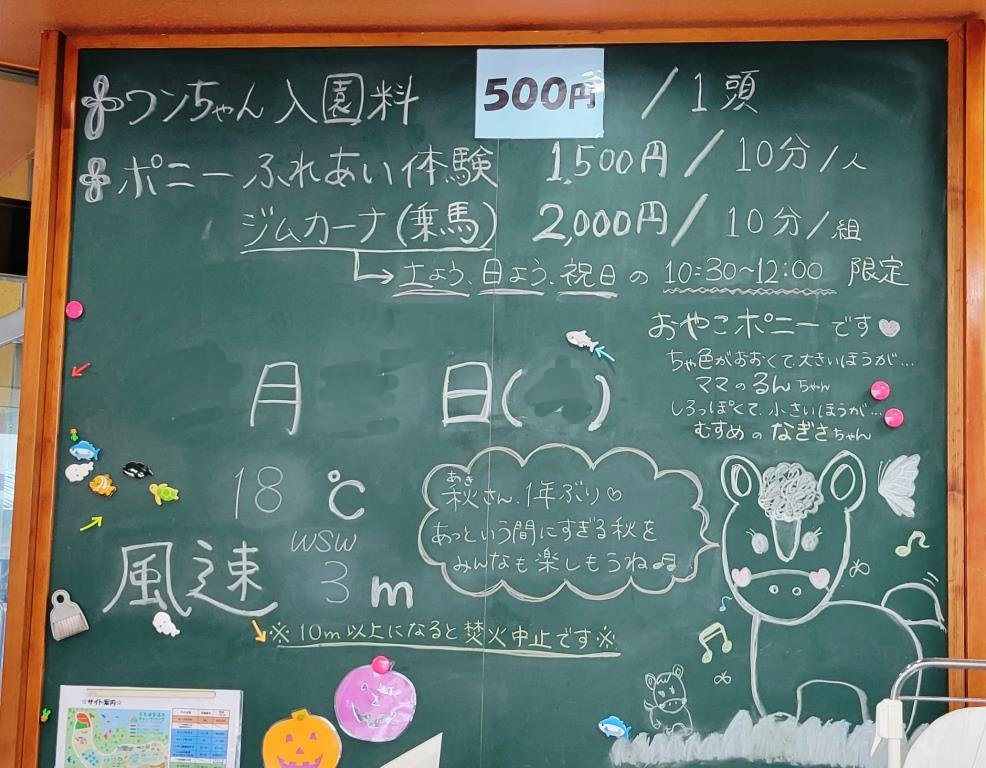 ワンちゃん入園料 500円 / 1頭
ポニーふれあい体験 1,500円 / 10分/人
ジムカーナ(乗馬) 2,000円 / 10分/組
土よう、日よう、祝日の 10:30~12:00 限定
おやこポニーです
ちゃ色がおおくて、大きいほうが…
ママの るんちゃん
しろっぽくて、小さいほうが…
むすめの なぎさちゃん
月 日( )
18℃
WSW
風速 3m
※10m以上になると焚火中止です※
あき
秋さん、1年ぶり♡
あっという間にすぎる秋を
みんなも楽しもうね♫
☆サイト案内☆